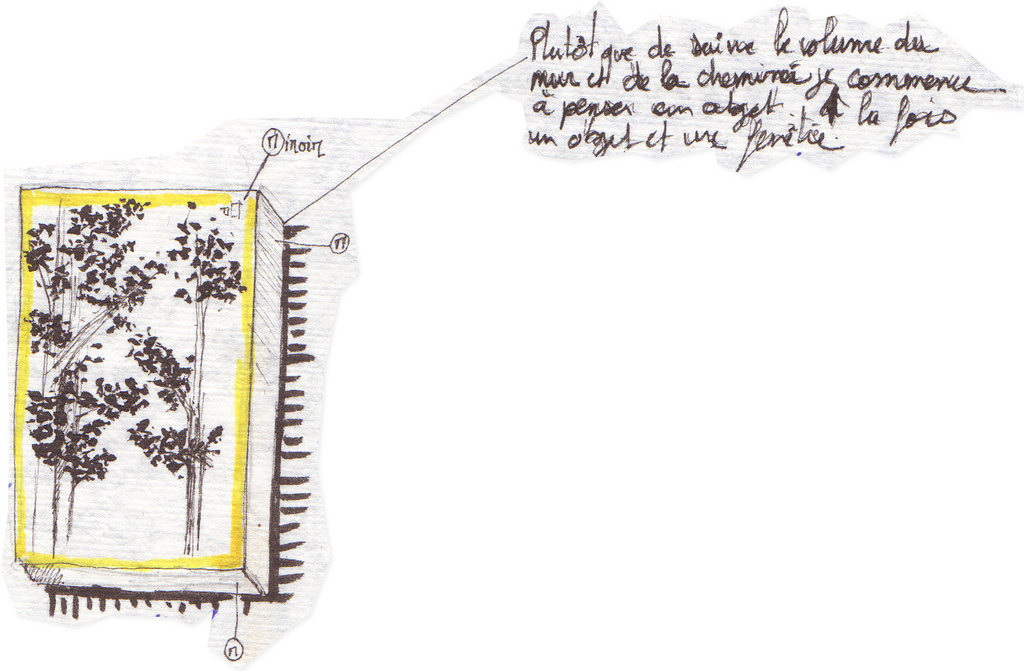 Plutôt que de suivre le volume du
mur et de la cheminée je commence
à penser un objet. A la fois
un objet et une fenêtre.
Miroir
M
M